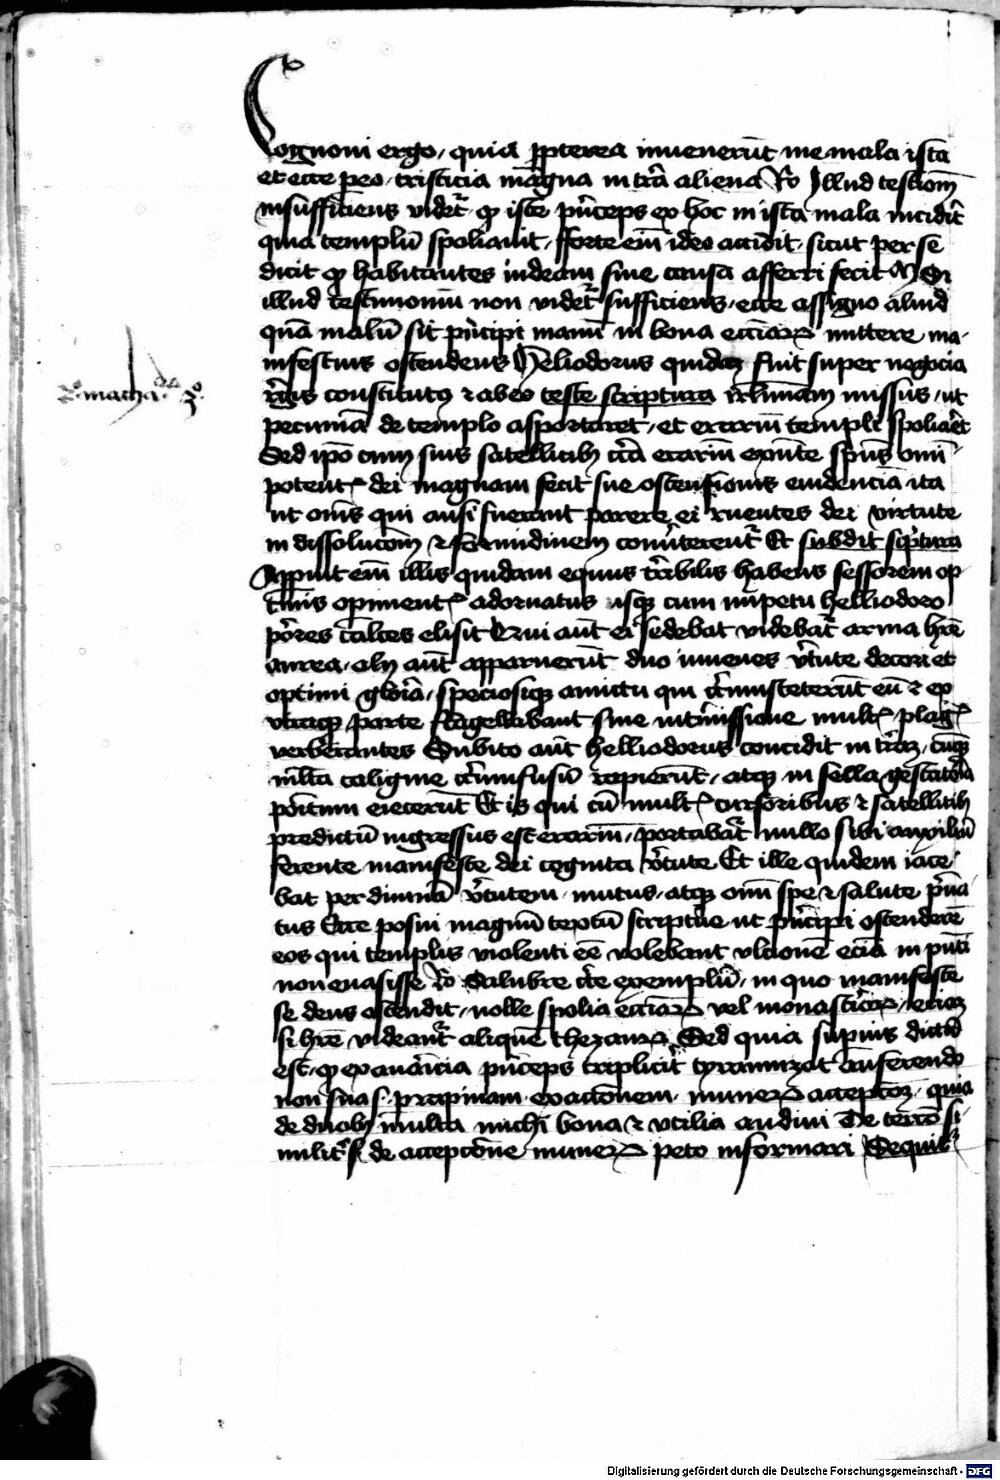 Cognoui ergo, quia ꝓpterea inueneru̅t me mala ista
et ecce ꝑeo tristicia magna in tr̅a aliena Rͦ Illud testiom̅
insufficiens videt᷑ ꝙ iste pri̅ceps ex hoc in ista mala incidit
quia templu̅ spoliauit, fforte em̅ ideo accidit sicut per se
dicit ꝙ habitantes iudeam sine causa afferri fecit M Si
illud testimoniu̅ non videt᷑ sufficiens, ecce assigno aliud
qua̅ malu̅ sit pri̅cipi manu̅ in bona eccia̅ꝝ mittere, ma-
nifestius ostendens Heliodorus quidaꝫ fuit super negocia
2ͦ macha. 3ͦ.
re̅gis constitutꝰ ⁊ ab eo teste scriptura ihrl̅imam missus, ut
pecunia̅ de templo asportaret, et erariu̅ templi spoliaret
Sed ip̅o cum suis satellitibꝫ circa erariu̅ existente spu̅s omi̅-
potentꝭ dei magnam fecit sue ostensionis euidencia̅ ita
ut om̅s qui ausi fuerant parere ei ruentes dei virtute
in dissoluc̅om ⁊ formidinem conuerterent᷑ Et subdit sc̅ptura
Apparuit em̅ illis quidam equus t̅ribilis habens sessorem op-
timis opimentꝭ adornatus isqꝫ cum impetu helliodoro
priores calces elisit Qui aut̅ ei sedebat videbat᷑ arma hr̅e
aurea, alij aut̅ apparueru̅t duo iuuenes v̅tute decori et
optimi gloria, speciosiqꝫ amictu qui circumsteteru̅t eu̅ ⁊ ex
vtraqꝫ parte flagellabant sine intermissione multꝭ plagꝭ
verberantes Subito aut̅ helliodorus concidit in tr̅aꝫ, cu̅qꝫ
multa caligine circumfusu̅ rapueru̅t, atqꝫ in sella gestatoria
positum eieceru̅t Et is qui cu̅ multꝭ cursoribus ⁊ satellitibꝫ
predictu̅ ingressus est erariu̅, portabat᷑ nullo sibi auxiliu̅
ferente manifeste dei cognita v̅tute Et ille quidem iace-
bat per diuina̅ v̅tutem mutus, atqꝫ omi̅ spe ⁊ salute pri̅ua
tus Ecce posui magnu̅ textu̅ scripture ut pri̅cipi ostendere̅
eos qui templis violenti ee̅ volebant vlcione̅ ecia̅ in pn̅ti
non euasisse Rͦ Salubre cer̅te exemplu̅, in quo manifeste
se deus ostendit, nolle spolia eccia̅ꝝ vel monasterioꝝ, eciaꝫ
si hr̅e videant᷑ alique̅ thezauꝝ Sed quia supius dictu̅
est, ꝙ ex auaricia pri̅ceps triplicit̅ tyrannizat auferendo
non sua s. ꝑ rapinam, exactionem, muneꝝ accepc̅oeꝫ, quia
de duobꝫ multa michi bona ⁊ vtilia audiui De tercio si-
milit̅ s. de accepc̅one muneꝝ peto informari Sequit᷑